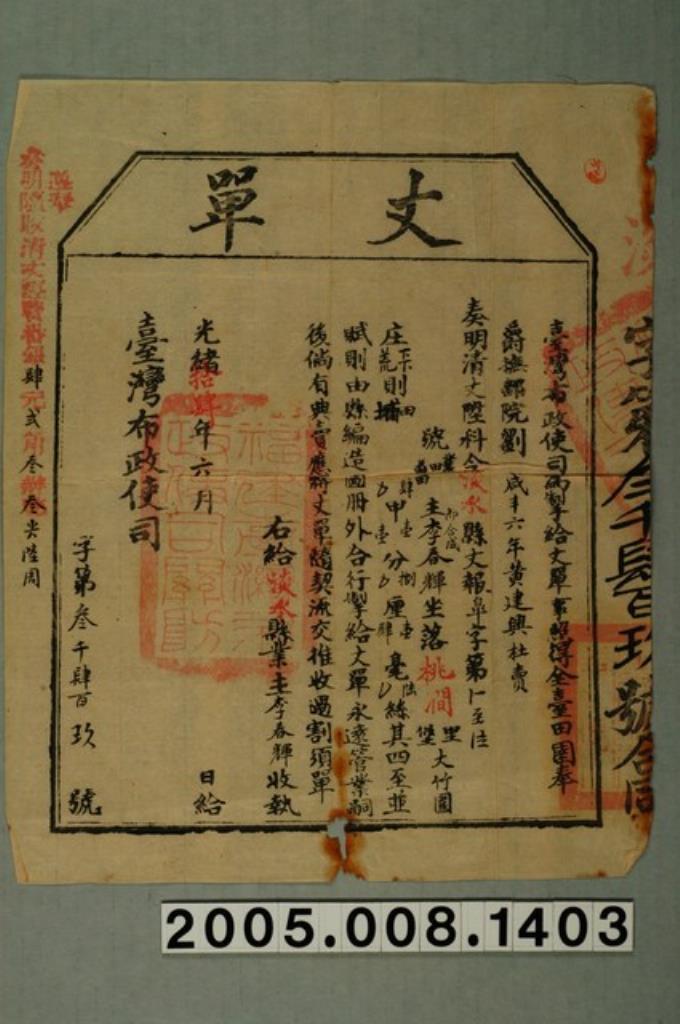 丈單
臺灣布政使司為掣給丈單事照得全臺田園奉
爵撫部院劉 咸丰六年黃建興杜賣
奏明清丈陞科今淡水縣丈報阜字第
號 業田主李春輝坐落桃澗堡里大竹圍
庄下則田 甲 分 厘 毫 絲其四至並
賦則由縣編造圖冊外合行掣給丈單永遠管業嗣
後倘有典賣應將丈單隨契流交推收過割須單
右給淡水縣業主李春輝收執
光緒拾肆年六月 日給
臺灣布政使司
字第叁千肆百玖號
字第叁千肆百玖號合同
奏明隨收清丈經費番銀肆元弍角叁 叁尖陸周
2005.008.1403